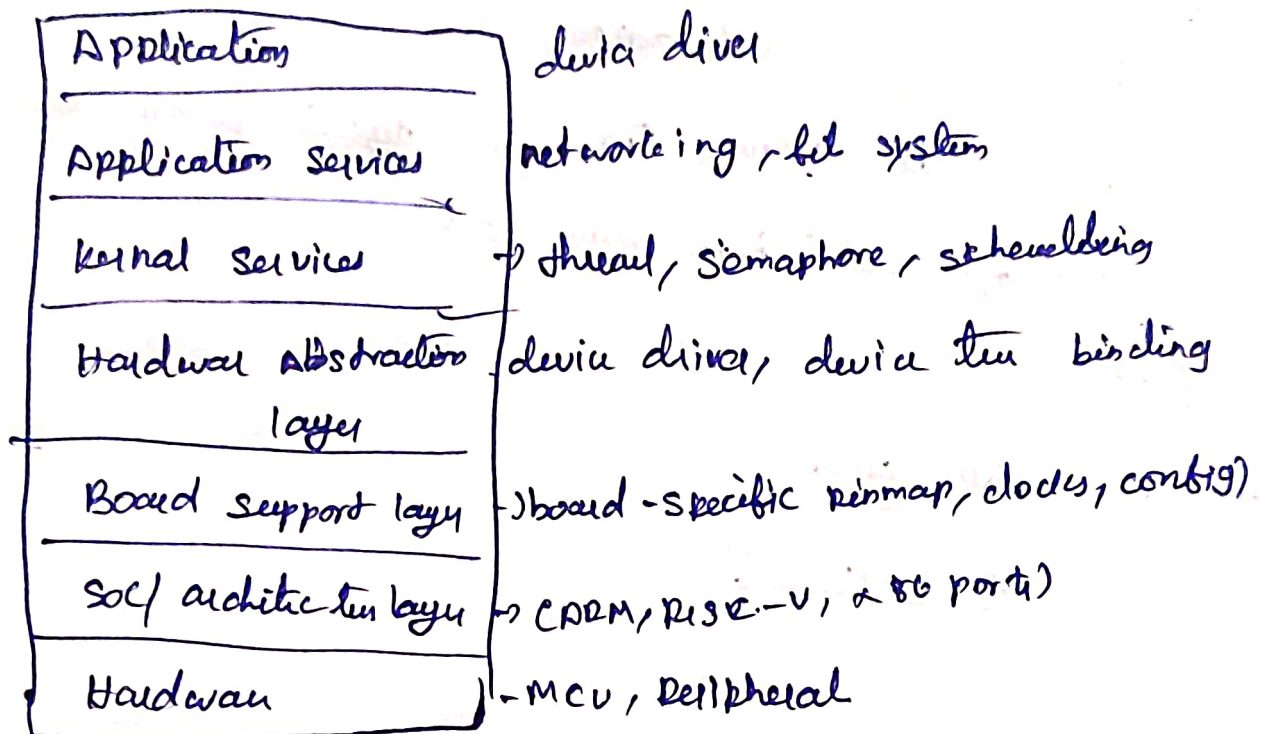 Application device driver
Application services networking, file system
Kernal services → thread, semaphore, scheduling
Hardware Abstraction device driver, device tree binding
layer
Board support layer → board-specific pinmap, clocks, config)
SOC/ architecture layer → (ARM, RISC-V, x86 ports)
Hardware - MCU, Peripheral